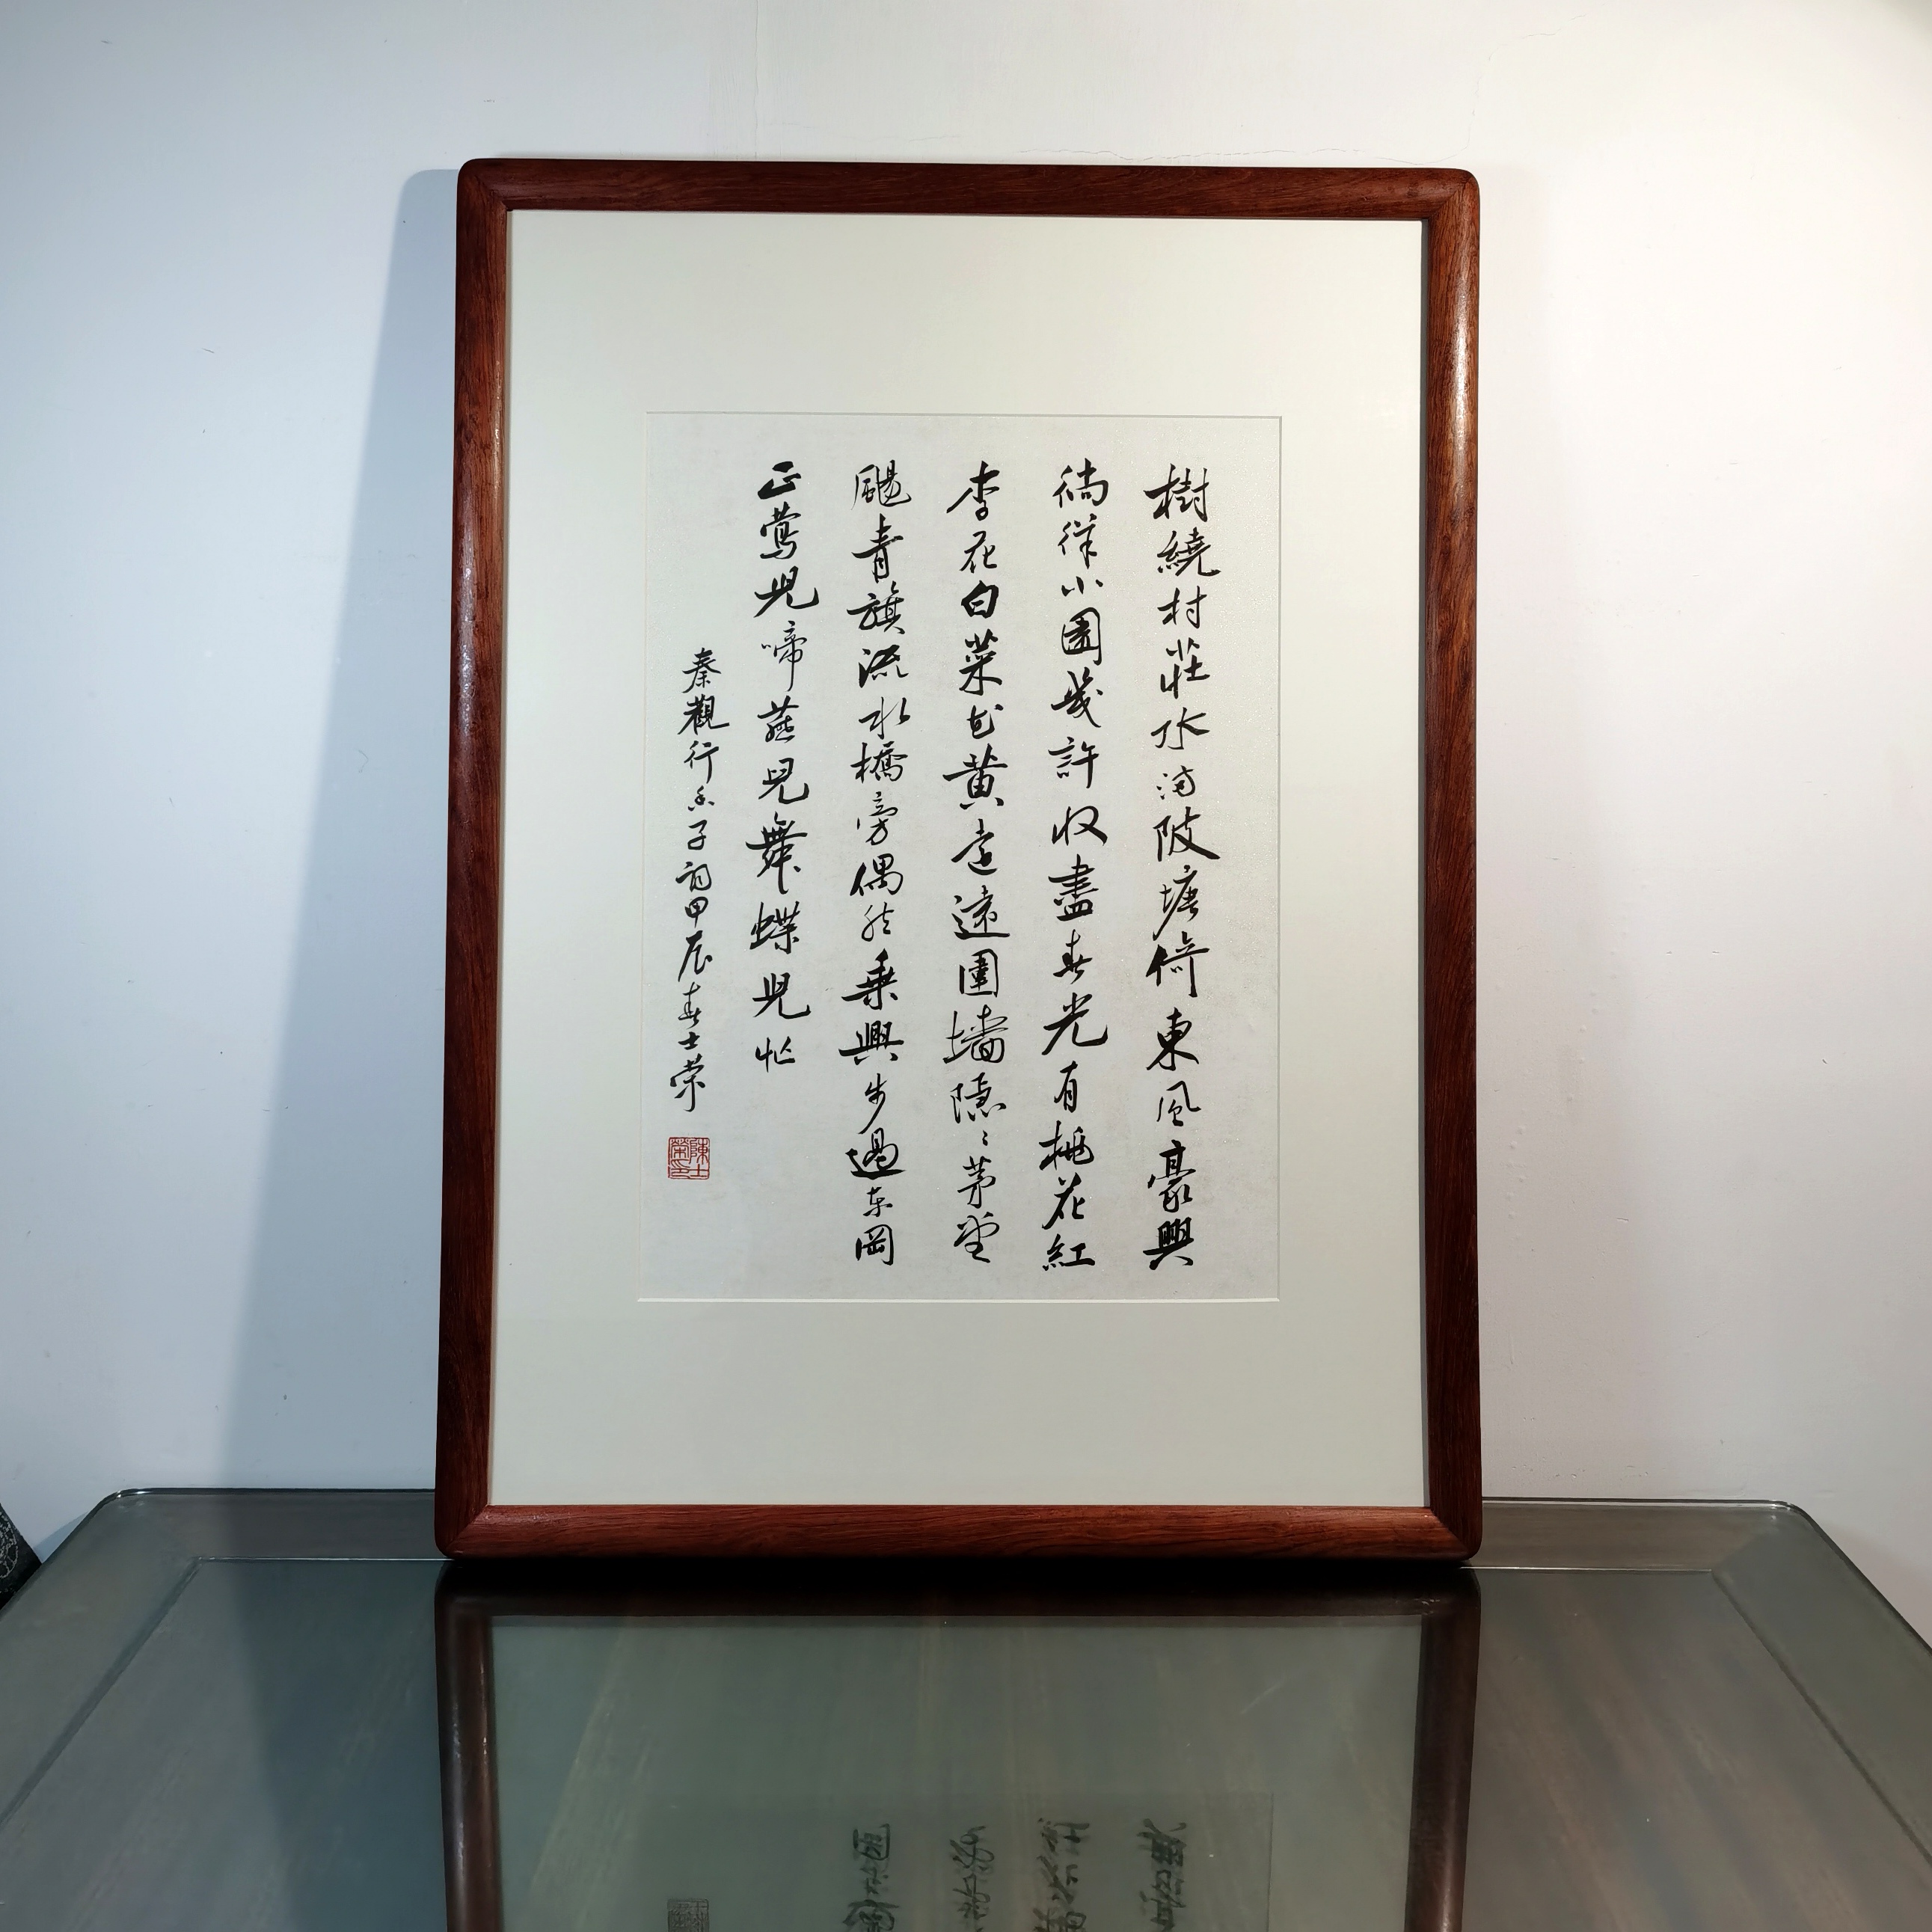 樹繞村莊水滿陂塘倚東風豪興
徜徉小園幾許收盡春光有桃花紅
李花白菜花黃遠遠圍墻隱〻茅堂
颺青旗流水橋旁偶然乘興步過东岡
正鶯兒啼燕兒舞蝶兒忙
秦觀行香子詞甲辰春士榮
陳士榮印